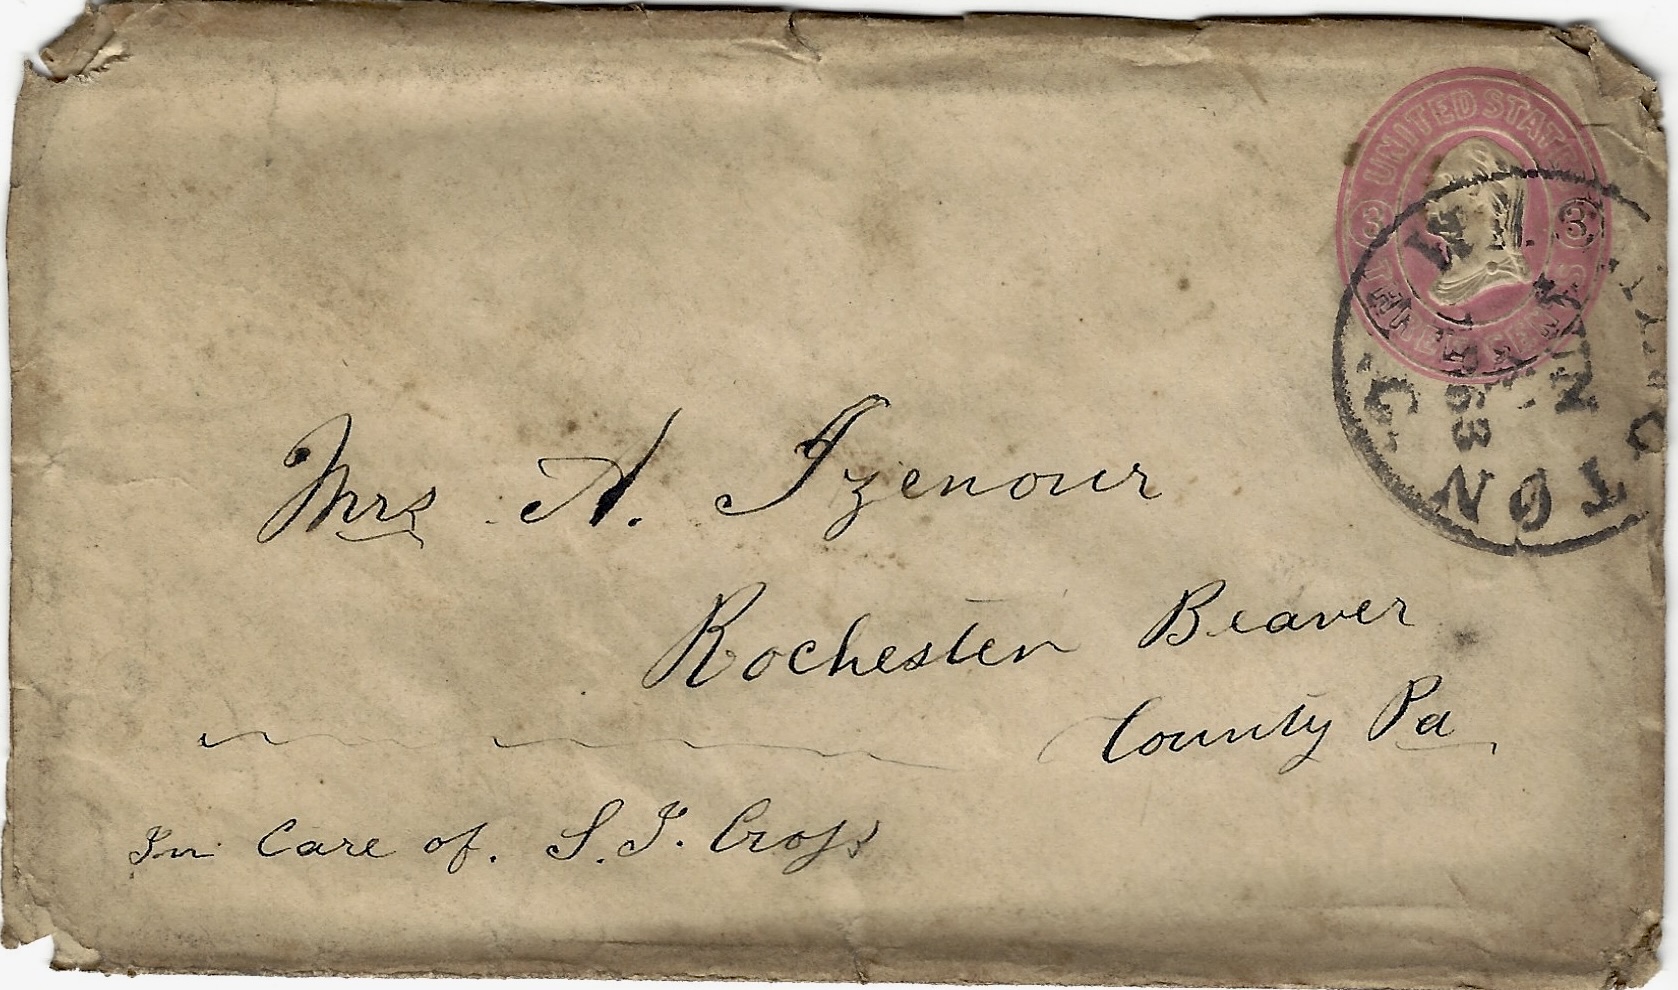 UNITED STATES
3 3
THREE CENTS
63
TON
Mrs A. Izenour
Rochester Beaver
County Pa
In Care of. S. J. Cross